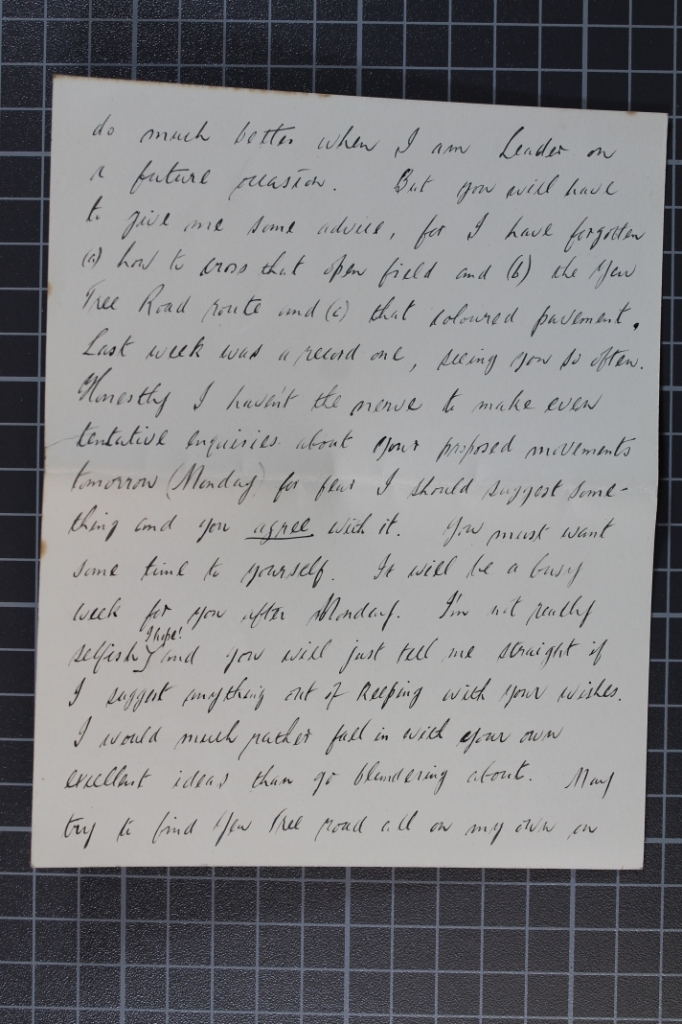 do much better when I am Leader on
a future occasion. But you will have
to give me some advice, for I have forgotten
(a) how to cross that open field and (b) the Yew
Tree Road route and (c) that coloured pavement.
Last week was a record one, seeing you so often.
Honestly I haven't the nerve to make even
tentative enquiries about your proposed movements
tomorrow (Monday) for fear I should suggest some-
thing and you agree with it. You must want
some time to yourself. It will be a busy
week for you after Monday. I'm not really
I hope!
selfish and you will just tell me straight if
I suggest anything out of keeping with your wishes.
I would much rather fall in with your own
excellent ideas than go blundering about. May
try to find Yew Tree road all on my own on